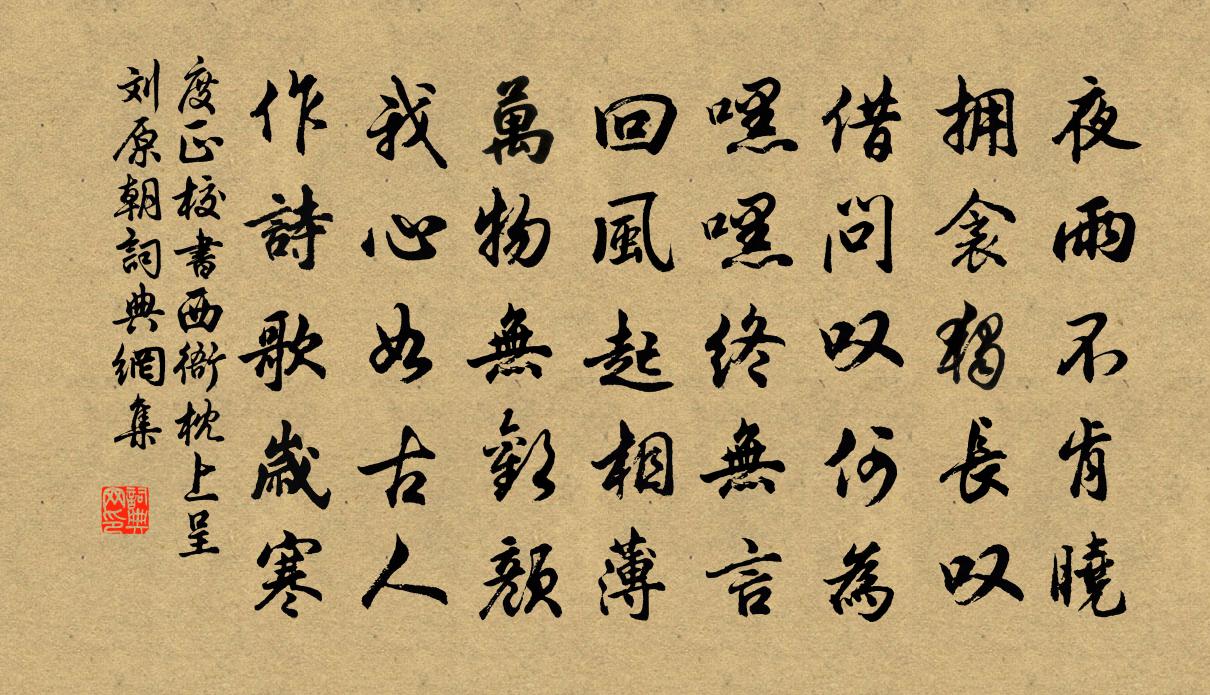 夜雨不肯曉
拥衾獨長叹
借问叹何為
嘿嘿終無言
回風起相薄
萬物無歡顏
我心如古人
作詩歌歲寒
度正校書西衙枕上呈
刘原朝詞典網集
詞典
网印